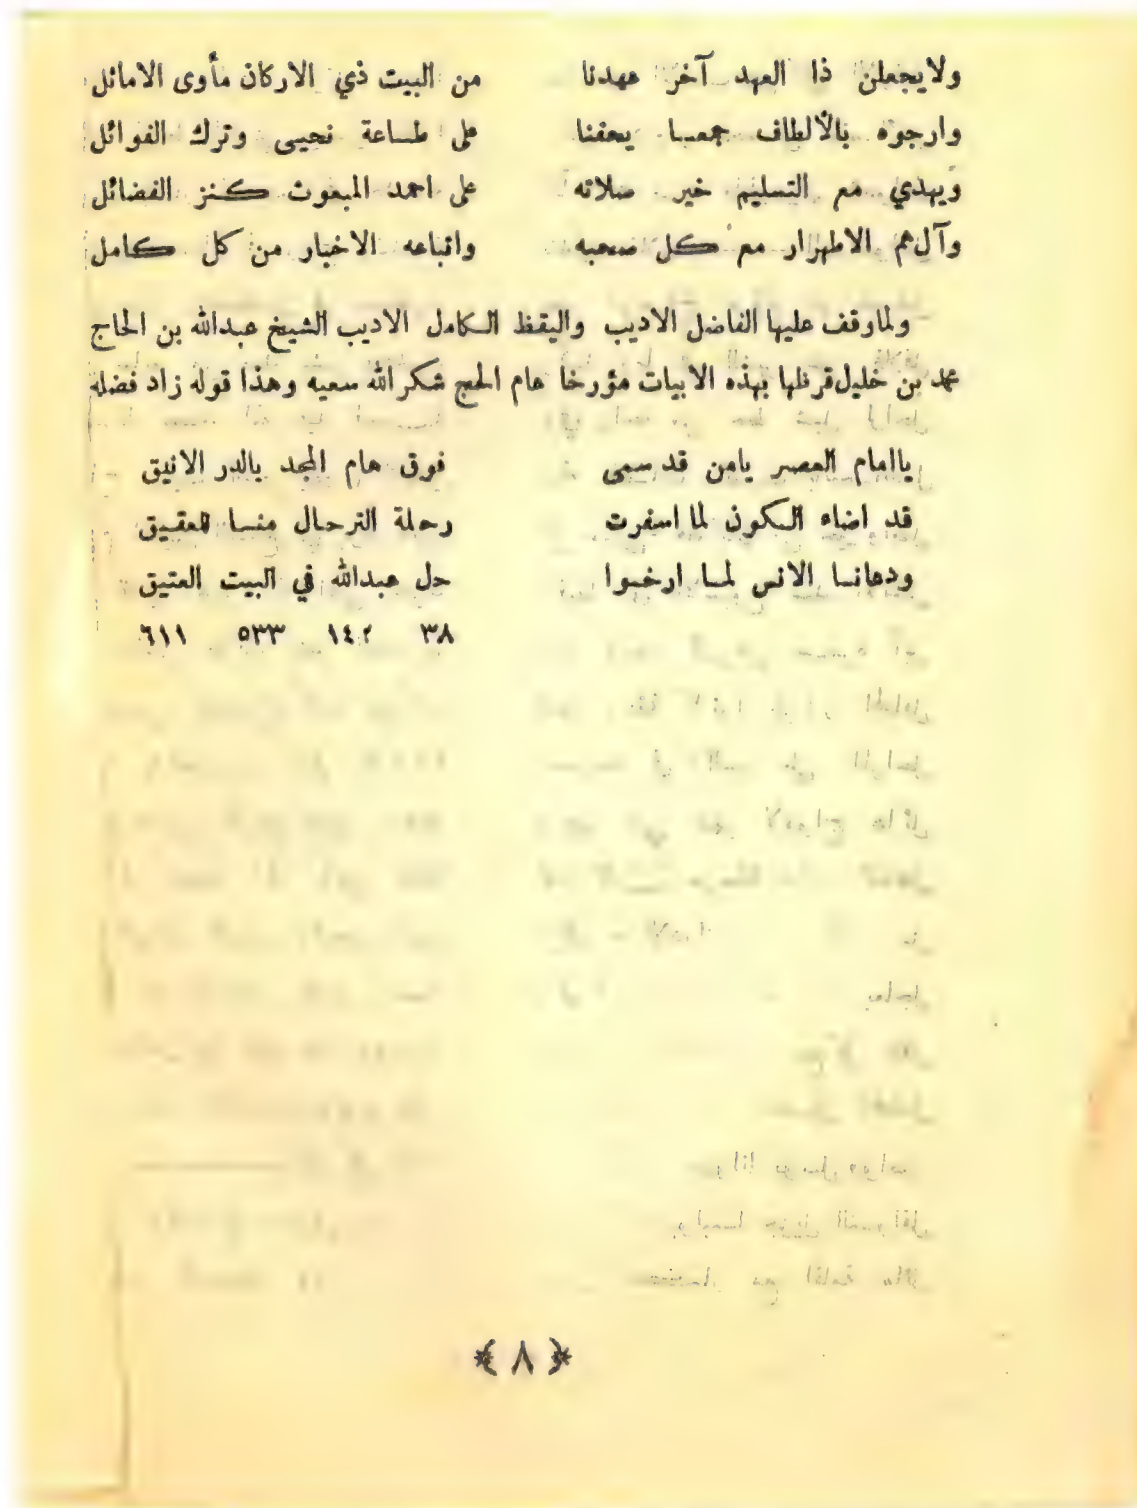 ولايجعلن ذا العهد آخر عهدنا من البيت ذي الاركان مأوى الاماثل
وارجوه بالألطاف جمعا يحفنا على طاعة نحيى وترك الغوائل
ويهدي مع التسليم خير صلاته على احمد المبعوث كنز الفضائل
وآلهم الاطهرار مع كل صحبه واتباعه الاخيار من كل كامل
ولماوقف عليها الفاضل الاديب واليقظ الكامل الاديب الشيخ عبدالله بن الحاج
محمد بن خليل قرظها بهذه الابيات مؤرخا عام الحج شكر الله سعيه وهذا قوله زاد فضله
ياامام العصر يامن قد سمى فوق هام المجد بالدر الانيق
قد اضاء الكون لما اسفرت رحلة الترحال منا للعقيق
ودعانا الانس لما ارخوا حل عبدالله في البيت العتيق
٣٨ ١٤٢ ٥٣٣ ٦١١
﴿ ٨ ﴾